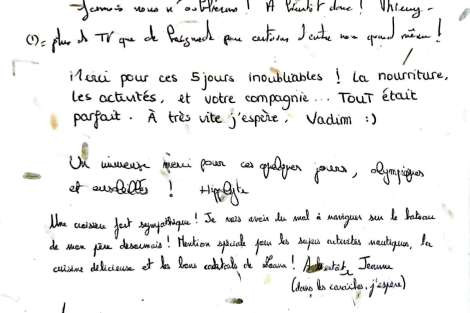 Jamais nous n'oublierons ! A bientôt donc ! Thierry -
(1) = plus de TV que de pour certains l'entre non quand même !
Merci pour ces 5 jours inoubliables ! La nourriture,
les activités, et votre compagnie... TOUT était
parfait. À très vite j'espère, Vadim :)
Un immense merci pour ces quelques jours, olympiques
et ensoleillés ! Hippolyte
Une croisière fort sympathique ! Je vais avoir du mal à naviguer sur le bateau
de mon père désormais ! Mention spéciale pour les supers activités nautiques, la
cuisine délicieuse et les bons cocktails de ! A bientôt, Jeanne
(dans les caraïbes, j'espère)